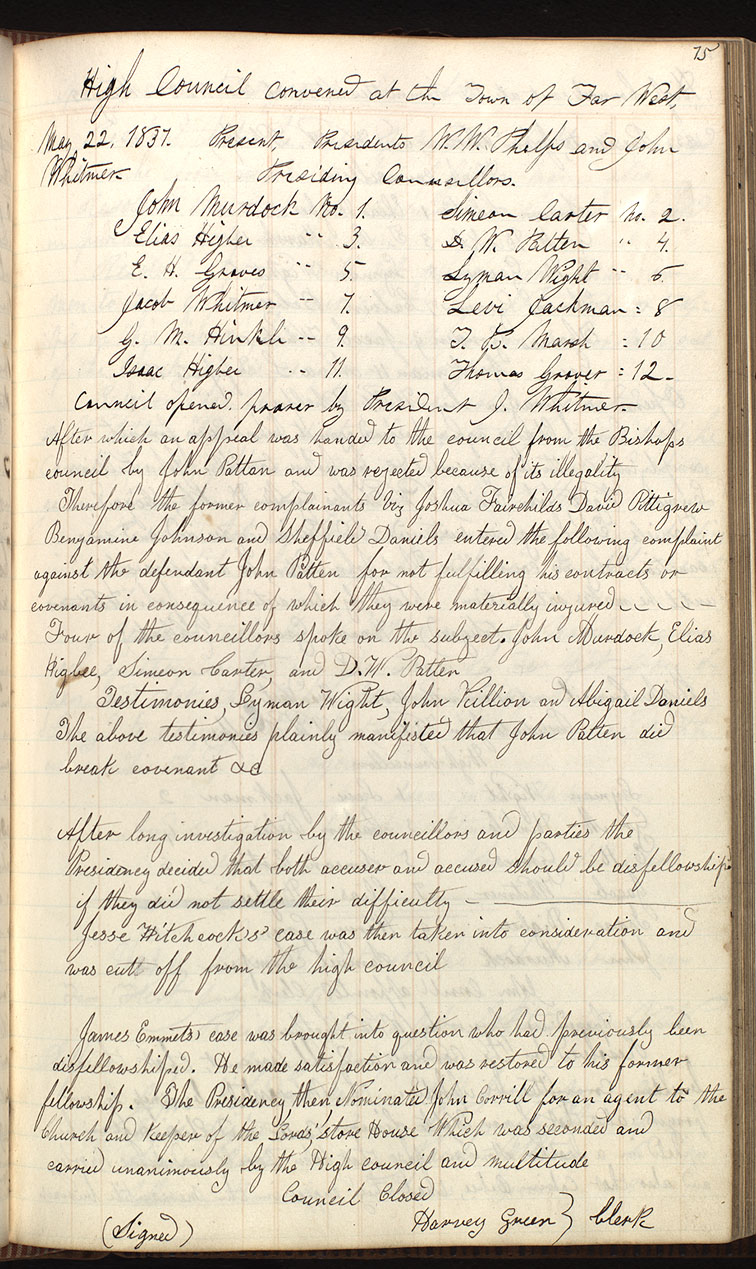 75
High Council convened at the Town of Far West,
May, 22, 1837. Present, Presidents W. W. Phelps and John
Whitmer Presiding Councillors.
John Murdock No. 1. Simeon Carter No. 2.
Elias Higbee " 3. D. W. Patten " 4.
E. H. Groves " 5. Lyman Wight " 6.
Jacob Whitmer " 7. Levi Jackman = 8
G. M. Hinkle " 9. T. B. Marsh : 10
Isaac Higbee " 11. Thomas Grover = 12.
Council opened. prayer by President J. Whitmer.
After which an appeal was handed to the council from the Bishops
council by John Pattan and was rejected because of its illegality
Therefore the former complainants viz Joshua Fairchilds David Pittigrew
Benjamine Johnson and Sheffield Daniels entered the following complaint
against the defendant John Patten for not fulfilling his contracts or
covenants in consequence of which they were materially injured
Four of the councillors spoke on the subject. John Murdock, Elias
Higbee, Simeon Carter, and D. W. Patten
Testimonies, Lyman Wight, John Killion and Abigail Daniels
The above testimonies plainly manifisted that John Patten did
break covenant &c
After long investigation by the councillors and parties the
Presidency decided that both accuser and accused should be disfellowship,d
if they did not settle their difficulty —
Jesse Hitchcock's' case was then taken into consideration and
was cutt off from the high council
James Emmets' case was brought into question who had previously been
disfellowshiped. He made satisfaction and was restored to his former
fellowship. The Presidency, then Nominated John Corrill for an agent to the
Church and Keeper of the Lords' store House Which was seconded and
carried unanimously by the High council and multitude
Council Closed
(Signed) Harvey Green } Clerk